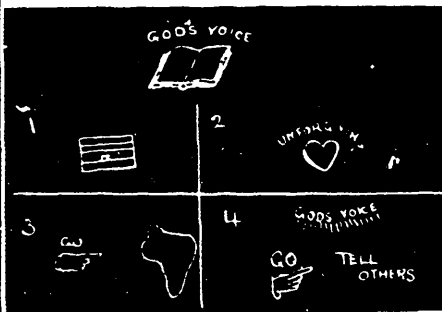 GOD'S VOICE
1
2
UNFORGIVING
3
GO
4
GODS VOICE
GO TELL
OTHERS